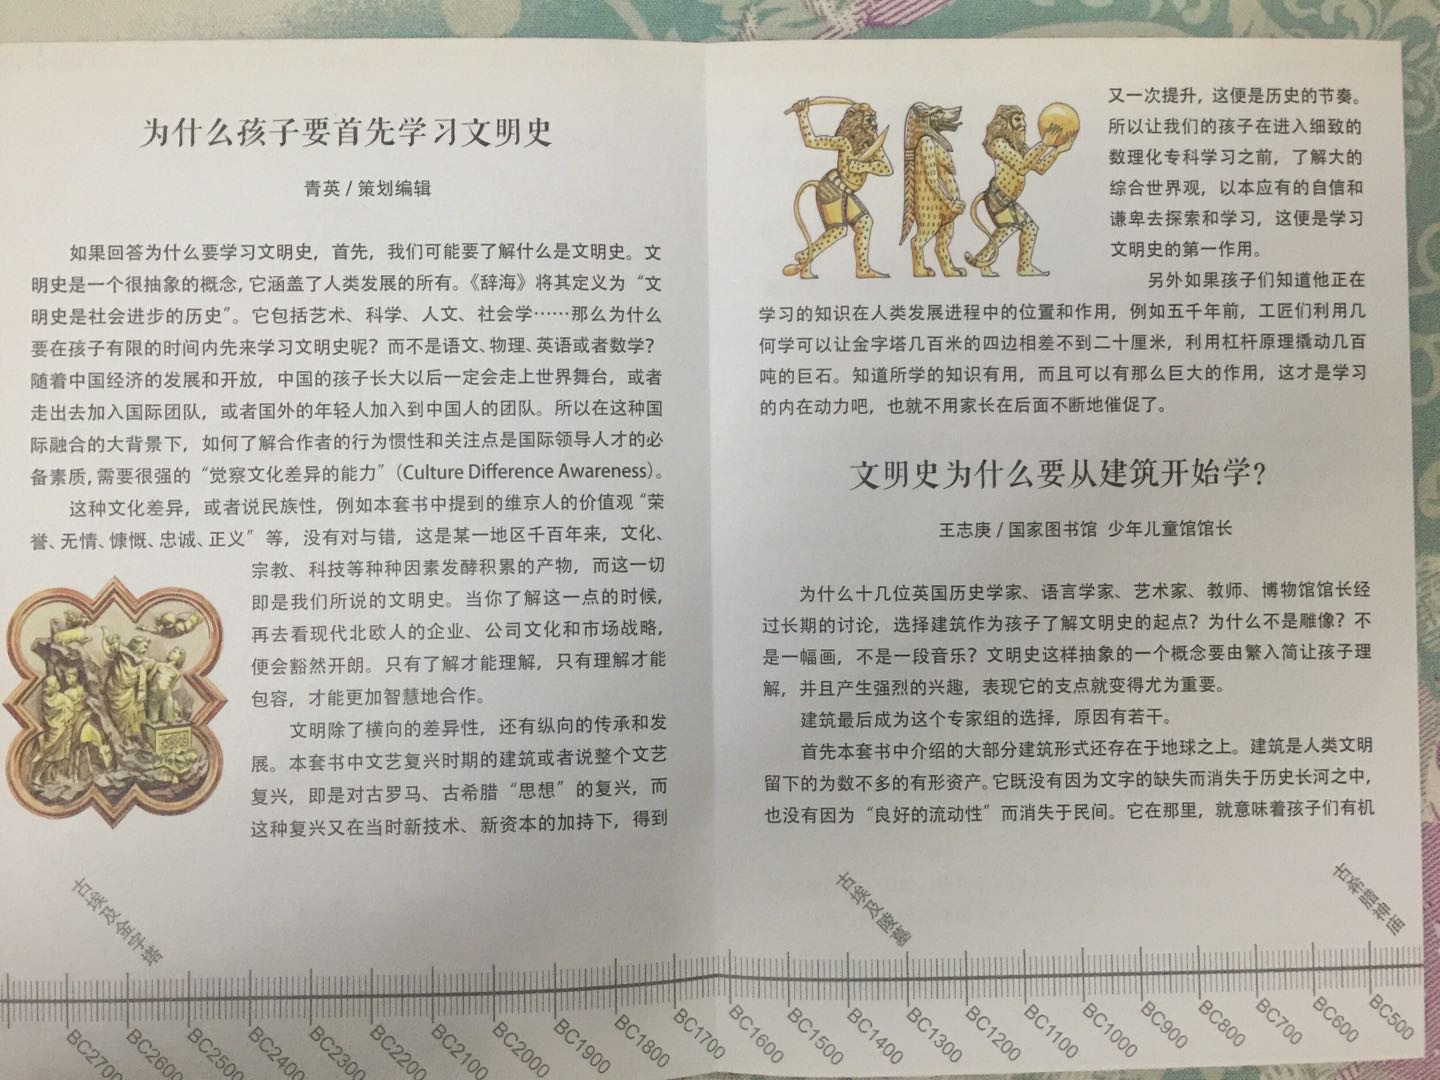 为什么孩子要首先学习文明史
青英 / 策划编辑
如果回答为什么要学习文明史，首先，我们可能要了解什么是文明史。文
明史是一个很抽象的概念，它涵盖了人类发展的所有。《辞海》将其定义为“文
明史是社会进步的历史”。它包括艺术、科学、人文、社会学……那么为什么
要在孩子有限的时间内先来学习文明史呢？而不是语文、物理、英语或者数学？
随着中国经济的发展和开放，中国的孩子长大以后一定会走上世界舞台，或者
走出去加入国际团队，或者国外的年轻人加入到中国人的团队。所以在这种国
际融合的大背景下，如何了解合作者的行为惯性和关注点是国际领导人才的必
备素质，需要很强的“觉察文化差异的能力”（Culture Difference Awareness）。
这种文化差异，或者说民族性，例如本套书中提到的维京人的价值观“荣
誉、无情、慷慨、忠诚、正义”等，没有对与错，这是某一地区千百年来，文化、
宗教、科技等种种因素发酵积累的产物，而这一切
即是我们所说的文明史。当你了解这一点的时候，
再去看现代北欧人的企业、公司文化和市场战略，
便会豁然开朗。只有了解才能理解，只有理解才能
包容，才能更加智慧地合作。
文明除了横向的差异性，还有纵向的传承和发
展。本套书中文艺复兴时期的建筑或者说整个文艺
复兴，即是对古罗马、古希腊“思想”的复兴，而
这种复兴又在当时新技术、新资本的加持下，得到
又一次提升，这便是历史的节奏。
所以让我们的孩子在进入细致的
数理化专科学习之前，了解大的
综合世界观，以本应有的自信和
谦卑去探索和学习，这便是学习
文明史的第一作用。
另外如果孩子们知道他正在
学习的知识在人类发展进程中的位置和作用，例如五千年前，工匠们利用几
何学可以让金字塔几百米的四边相差不到二十厘米，利用杠杆原理撬动几百
吨的巨石。知道所学的知识有用，而且可以有那么巨大的作用，这才是学习
的内在动力吧，也就不用家长在后面不断地催促了。
文明史为什么要从建筑开始学？
王志庚 / 国家图书馆 少年儿童馆馆长
为什么十几位英国历史学家、语言学家、艺术家、教师、博物馆馆长经
过长期的讨论，选择建筑作为孩子了解文明史的起点？为什么不是雕像？不
是一幅画，不是一段音乐？文明史这样抽象的一个概念要由繁入简让孩子理
解，并且产生强烈的兴趣，表现它的支点就变得尤为重要。
建筑最后成为这个专家组的选择，原因有若干。
首先本套书中介绍的大部分建筑形式还存在于地球之上。建筑是人类文明
留下的为数不多的有形资产。它既没有因为文字的缺失而消失于历史长河之中，
也没有因为“良好的流动性”而消失于民间。它在那里，就意味着孩子们有机
古埃及金字塔
古埃及陵墓
古希腊神庙
BC2700
BC2600
BC2500
BC2400
BC2300
BC2200
BC2100
BC2000
BC1900
BC1800
BC1700
BC1600
BC1500
BC1400
BC1300
BC1200
BC1100
BC1000
BC900
BC800
BC700
BC600
BC500